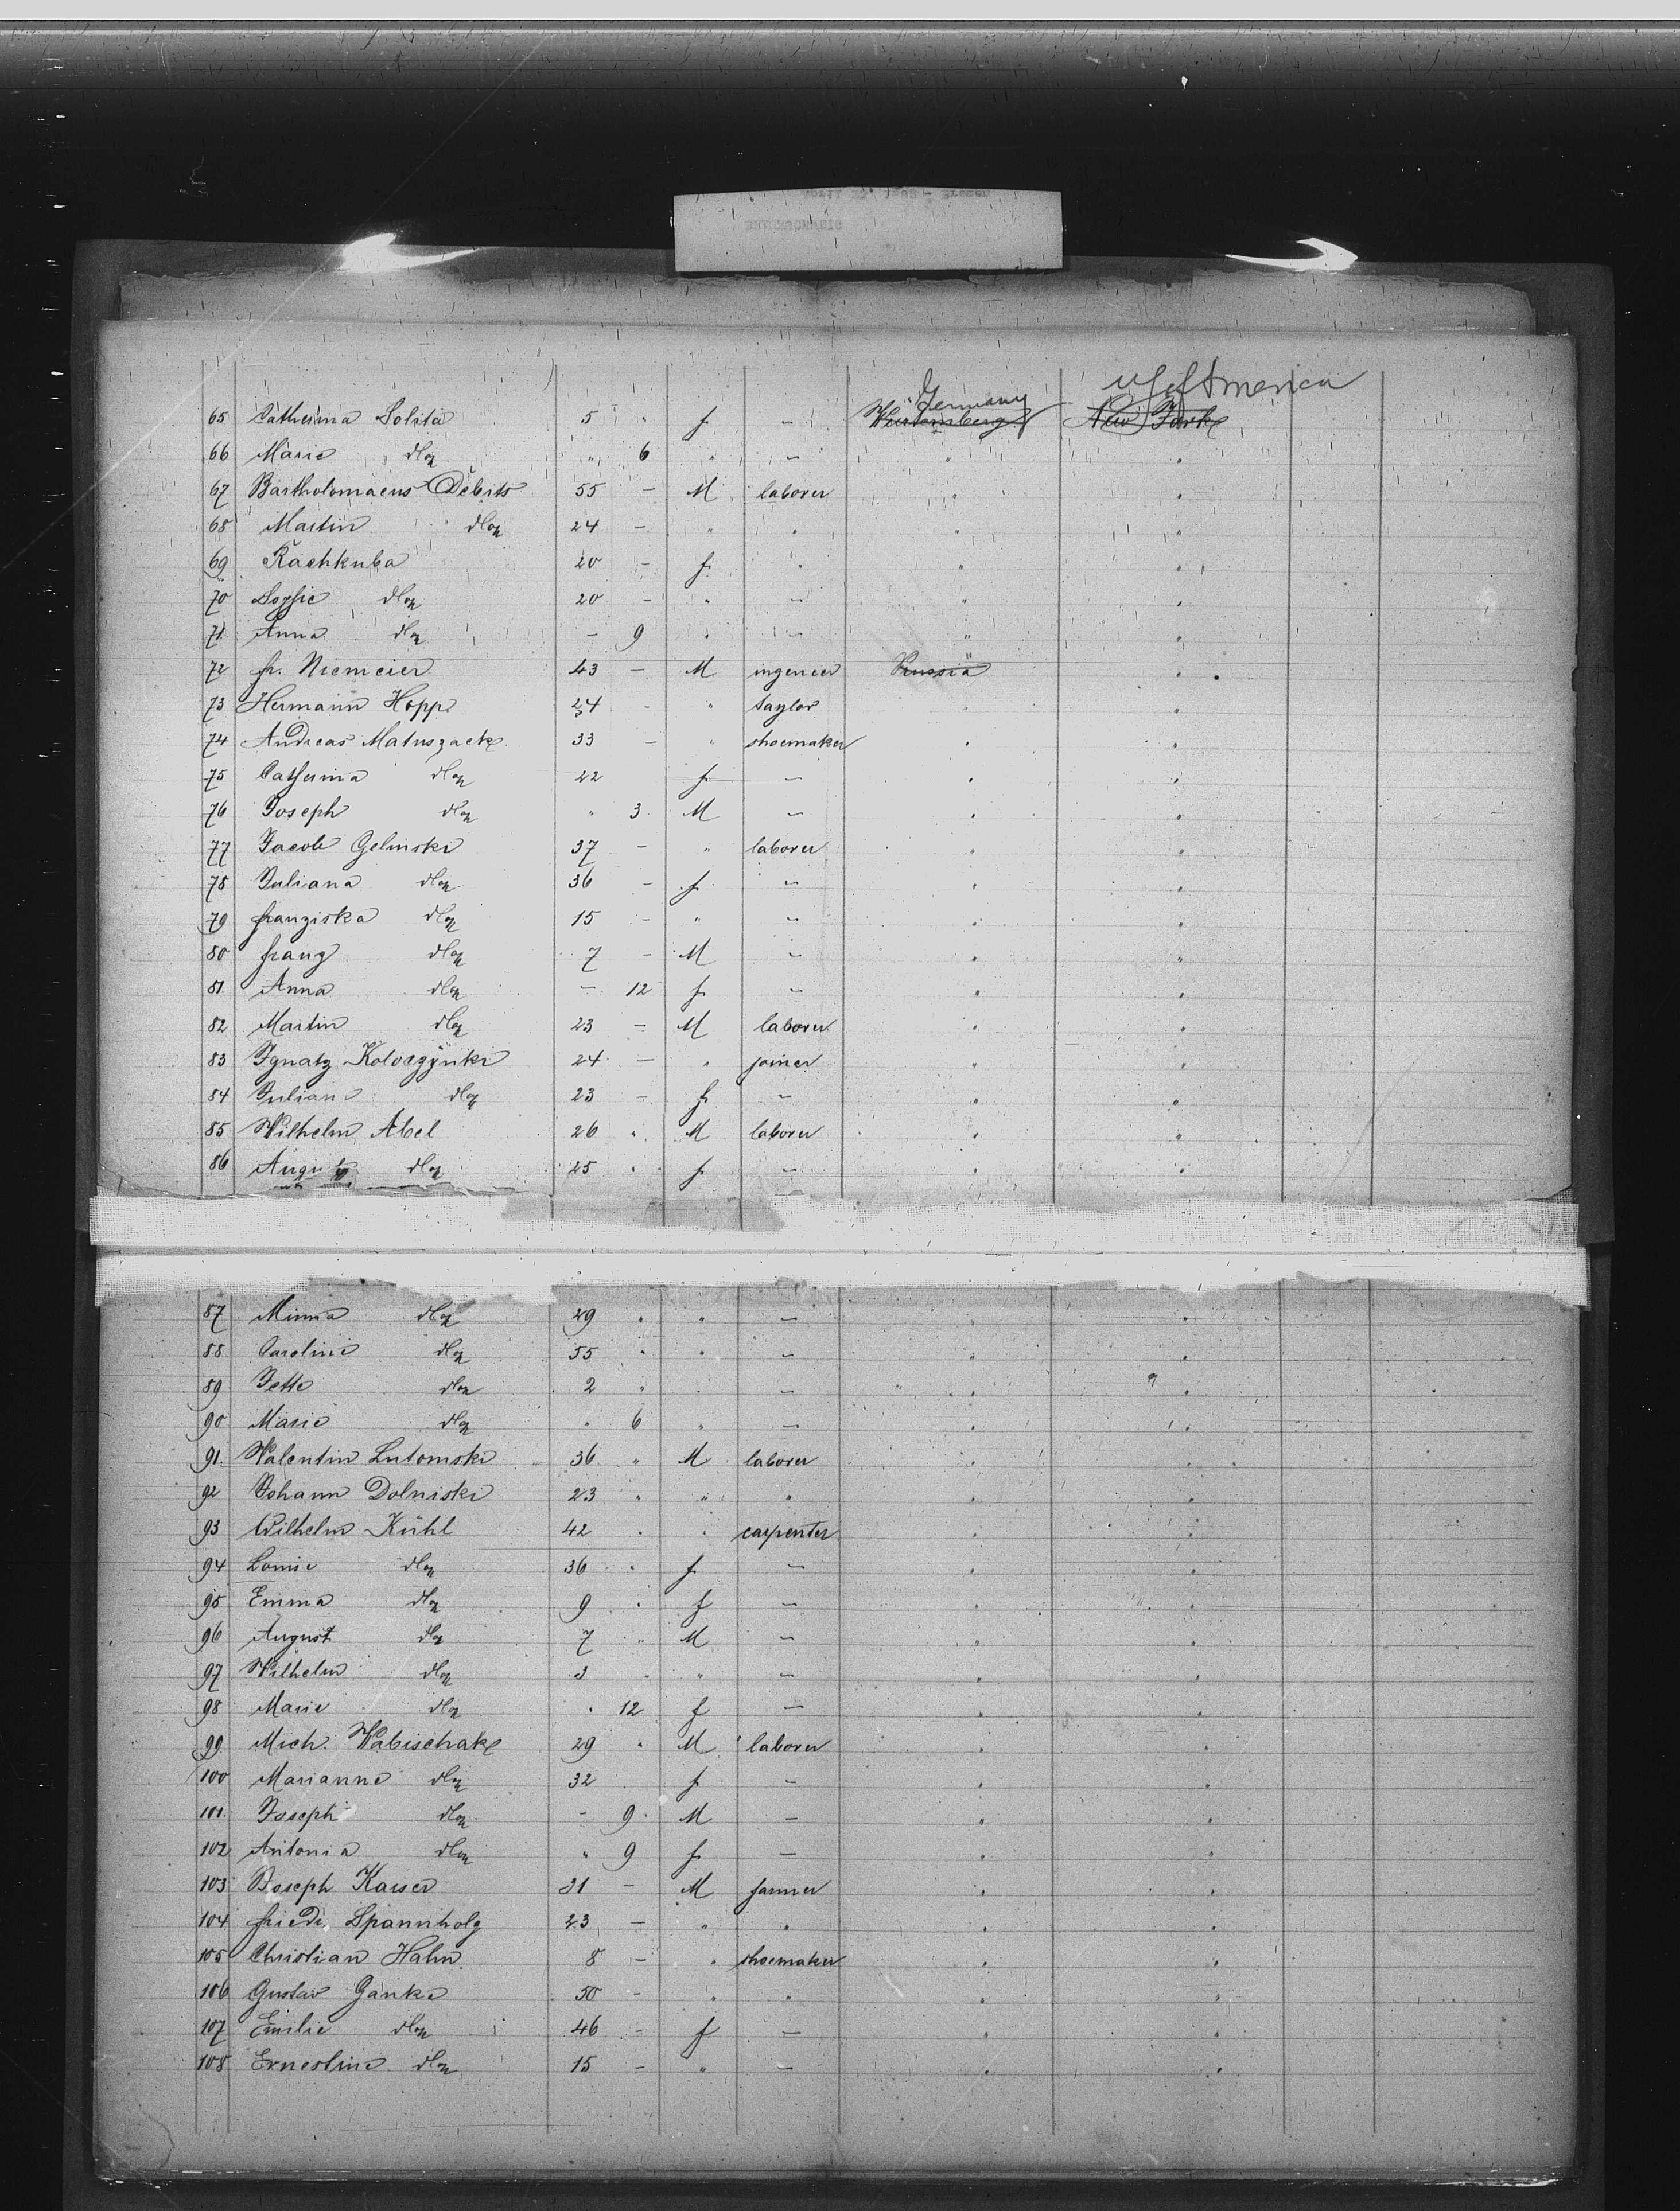 Germany U S of America
65 Catherina Solita 5 " f – Würtemberg New York
66 Marie do " 6 " – " "
67 Bartholomaeus Debits 55 – M laborer " "
68 Martin do 24 – " " " "
69 Rachkuba 20 – f " " "
70 Sophie do 20 – " – " "
71 Anna do – 9 " – " "
72 fr. Niemeier 43 – M ingeneer Prussia "
73 Hermann Hoppe 24 – " taylor " "
74 Andreas Matuszack 33 – " shoemaker " "
75 Catherina do 22 f – " "
76 Joseph do " 3 M – " "
77 Jacob Gelinski 37 – " laborer " "
78 Juliana do 36 – f – " "
79 franziska do 15 – " – " "
80 franz do 7 – M – " "
81 Anna do – 12 f – " "
82 Martin do 23 – M laborer " "
83 Ignatz 24 – " joiner " "
84 Juliane do 23 – f – " "
85 Wilhelm Abel 26 " M laborer " "
86 do 25 " f – " "
87 Minna do 29 " " – " "
88 Caroline do 55 " " – " "
89 Jette do 2 " " – " "
90 Marie do " 6 " – " "
91 Valentin Lutomski 36 " M laborer " "
92 Johann Dolniski 23 " " " " "
93 Wilhelm Kühl 42 " " carpenter " "
94 Louise do 36 " f – " "
95 Emma do 9 " f – " "
96 August do 7 " M – " "
97 Wilhelm do 3 " " – " "
98 Marie do " 12 f – " "
99 Mich. Wabischake 29 " M laborer " "
100 Marianne do 32 f – " "
101 Joseph do – 9 M – " "
102 Antonia do " 9 f – " "
103 Joseph Kaiser 31 – M farmer " "
104 friedr. Spannholz 23 – " " " "
105 Christian Hahn 8 – " shoemaker " "
106 Gustav Ganke 50 – " " " "
107 Emilie do 46 – f – " "
108 Ernestine do 15 – " – " "